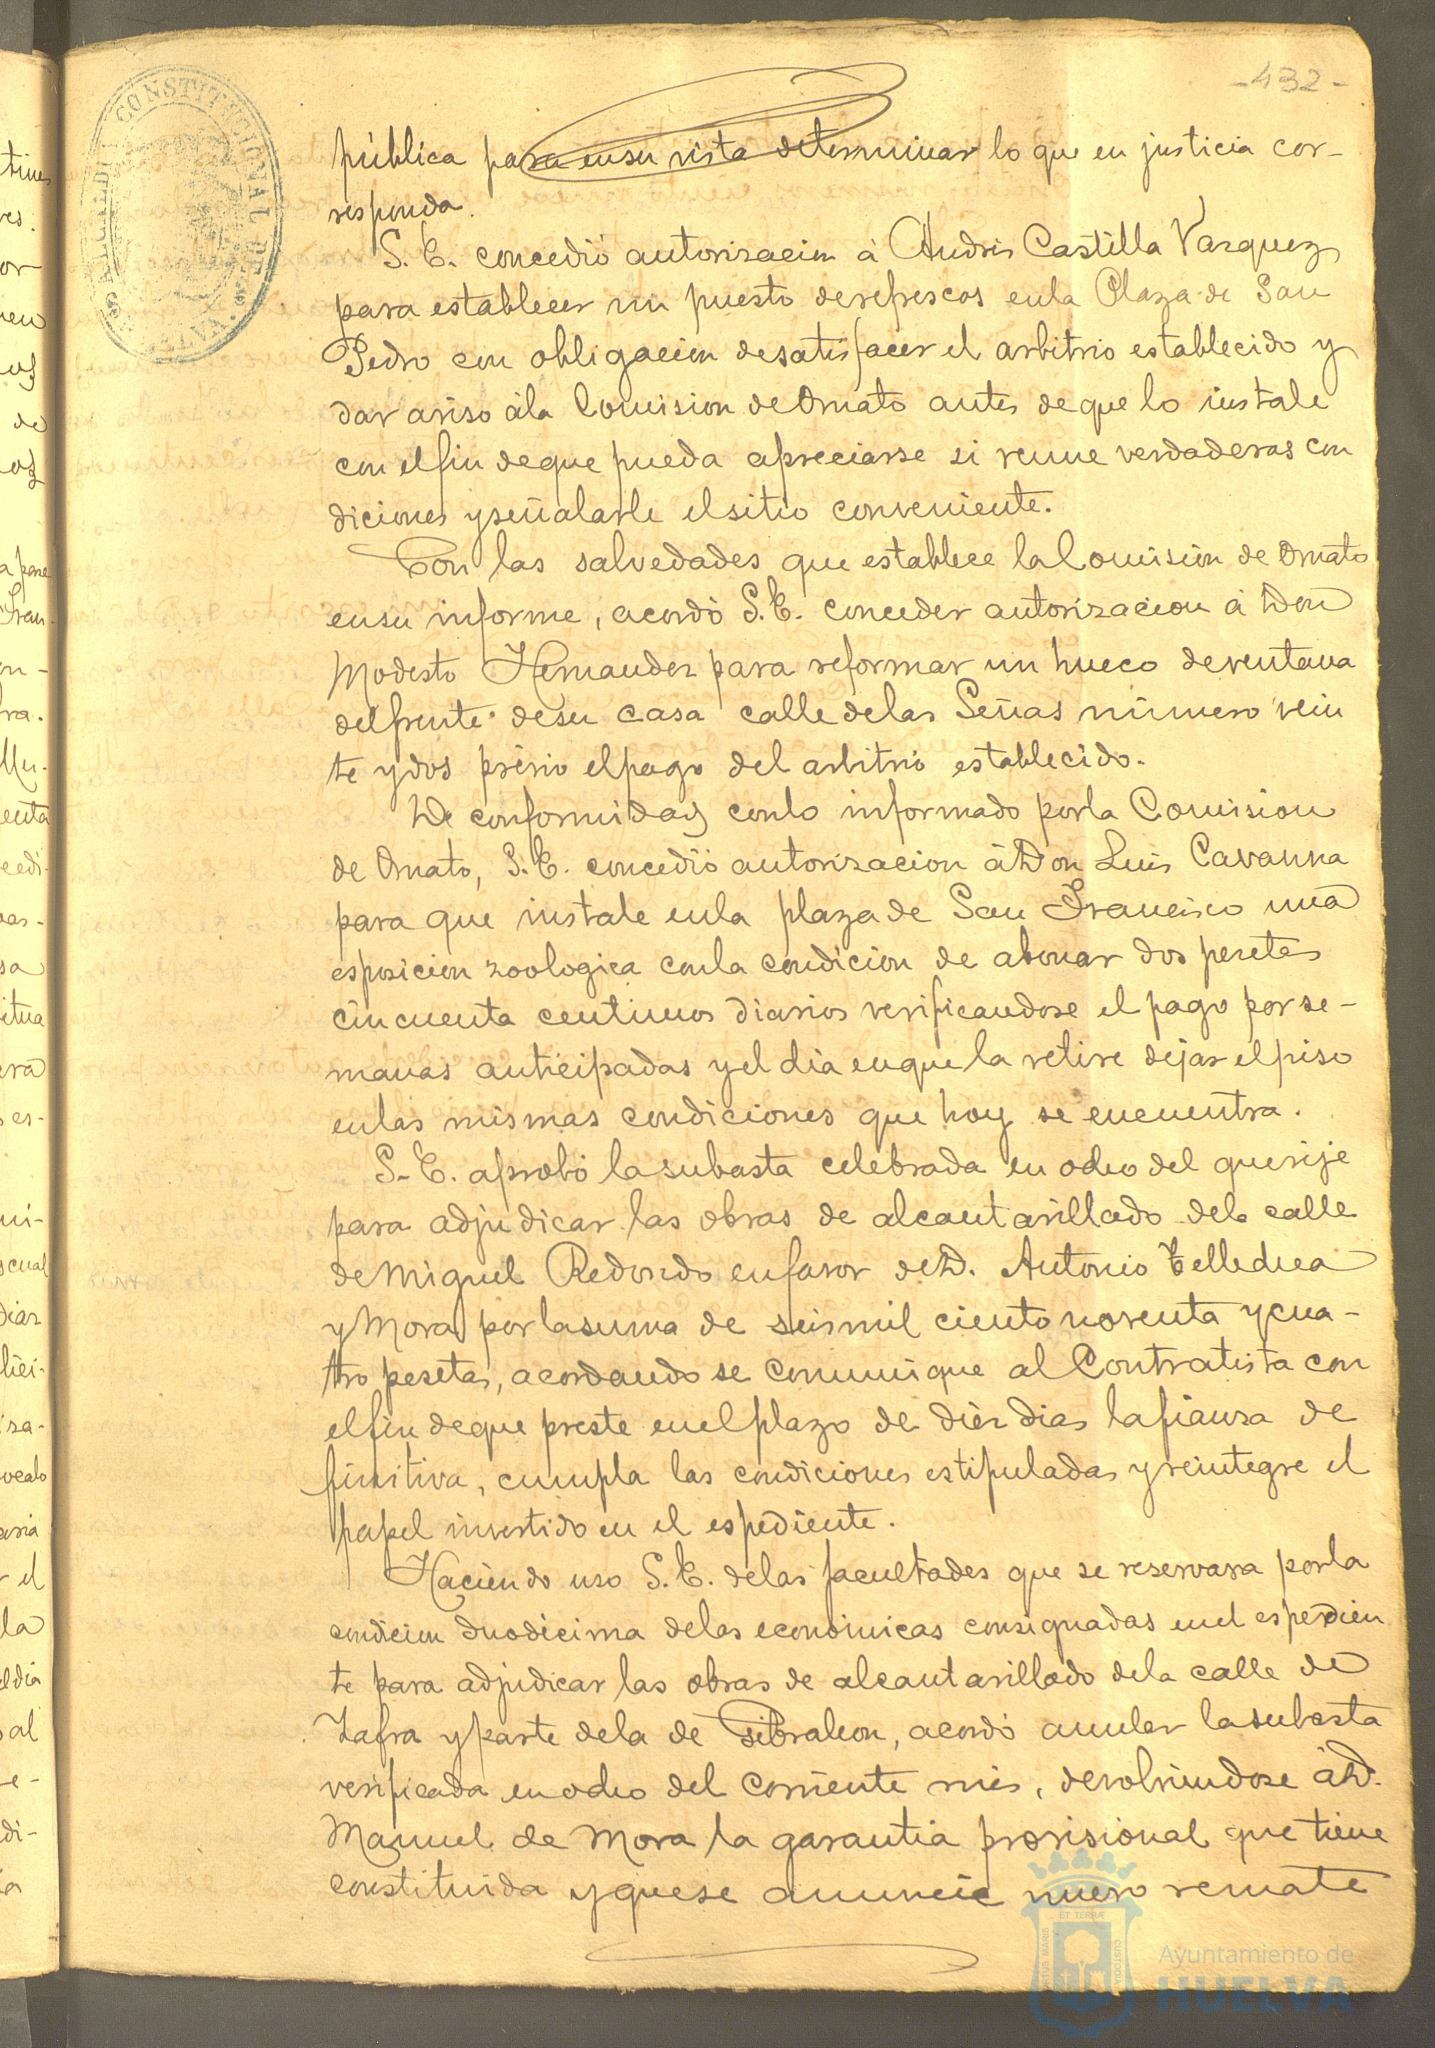 -432-
ALCALDIA CONSTITUCIONAL DE HUELVA
pública para en su vista determinar lo que en justicia cor-
responda.
S. E. concedió autorizacion á Andrés Castilla Vazquez
para establecer un puesto de refrescos en la Plaza de San
Pedro con obligacion de satisfacer el arbitrio establecido y
dar aviso á la Comision de Ornato antes de que lo instale
con el fin de que pueda apreciarse si reune verdaderas con
diciones y señalarle el sitio conveniente.
Con las salvedades que establece la Comisión de Ornato
en su informe, acordó S. E. conceder autorizacion á Don
Modesto Hernandez para reformar un hueco de ventana
del frente de su casa calle de las Señas número vein
te y dos prévio el pago del arbitrio establecido.
De conformidad con lo informado por la Comision
de Ornato, S. E. concedió autorizacion á Don Luis Cavanna
para que instale en la plaza de San Francisco una
esposicion zoologica con la condicion de abonar dos pesetas
cincuenta centimos diarios verificandose el pago por se-
manas anticipadas y el dia en que la retire dejar el piso
en las mismas condiciones que hoy se encuentra.
S. E. aprobó la subasta celebrada en ocho del que rije
para adjudicar las obras de alcantarillado de la calle
de Miguel Redondo en favor de D. Antonio
y Mora por la suma de seis mil ciento noventa y cua-
tro pesetas, acordando se comunique al Contratista con
el fin de que preste en el plazo de diez dias la fianza de
finitiva, cumpla las condiciones estipuladas y reintegre el
papel invertido en el espediente.
Haciendo uso S. E. de las facultades que se reservara por la
condicion duodécima de las económicas consignadas en el espedien
te para adjudicar las obras de alcantarillado de la calle de
Zafra y parte de la de Gibraleon, acordó anular la subasta
verificada en ocho del corriente mes, devolviendose á D.
Manuel de Mora la garantia provisional que tiene
constituida y que se anuncie nuevo remate
Ayuntamiento de
HUELVA